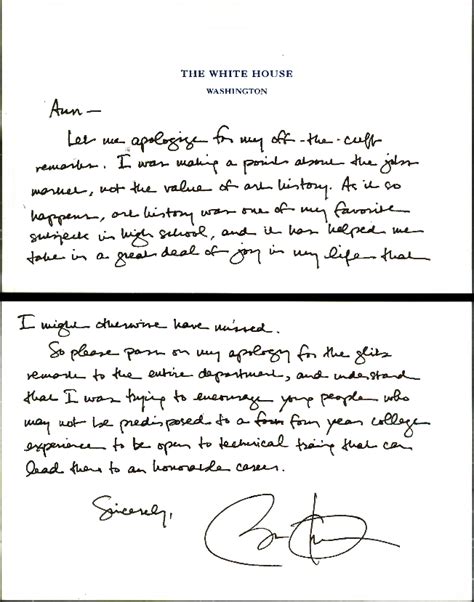 THE WHITE HOUSE
WASHINGTON
Ann —
Let me apologize for my off-the-cuff
remarks. I was making a point about the jobs
market, not the value of art history. As it so
happens, art history was one of my favorite
subjects in high school, and it has helped me
take in a great deal of joy in my life that
I might otherwise have missed.
So please pass on my apology for the glib
remark to the entire department, and understand
that I was trying to encourage young people who
may not be predisposed to a four year college
experience to be open to technical traing that can
lead them to an honorable career.
Sincerely,